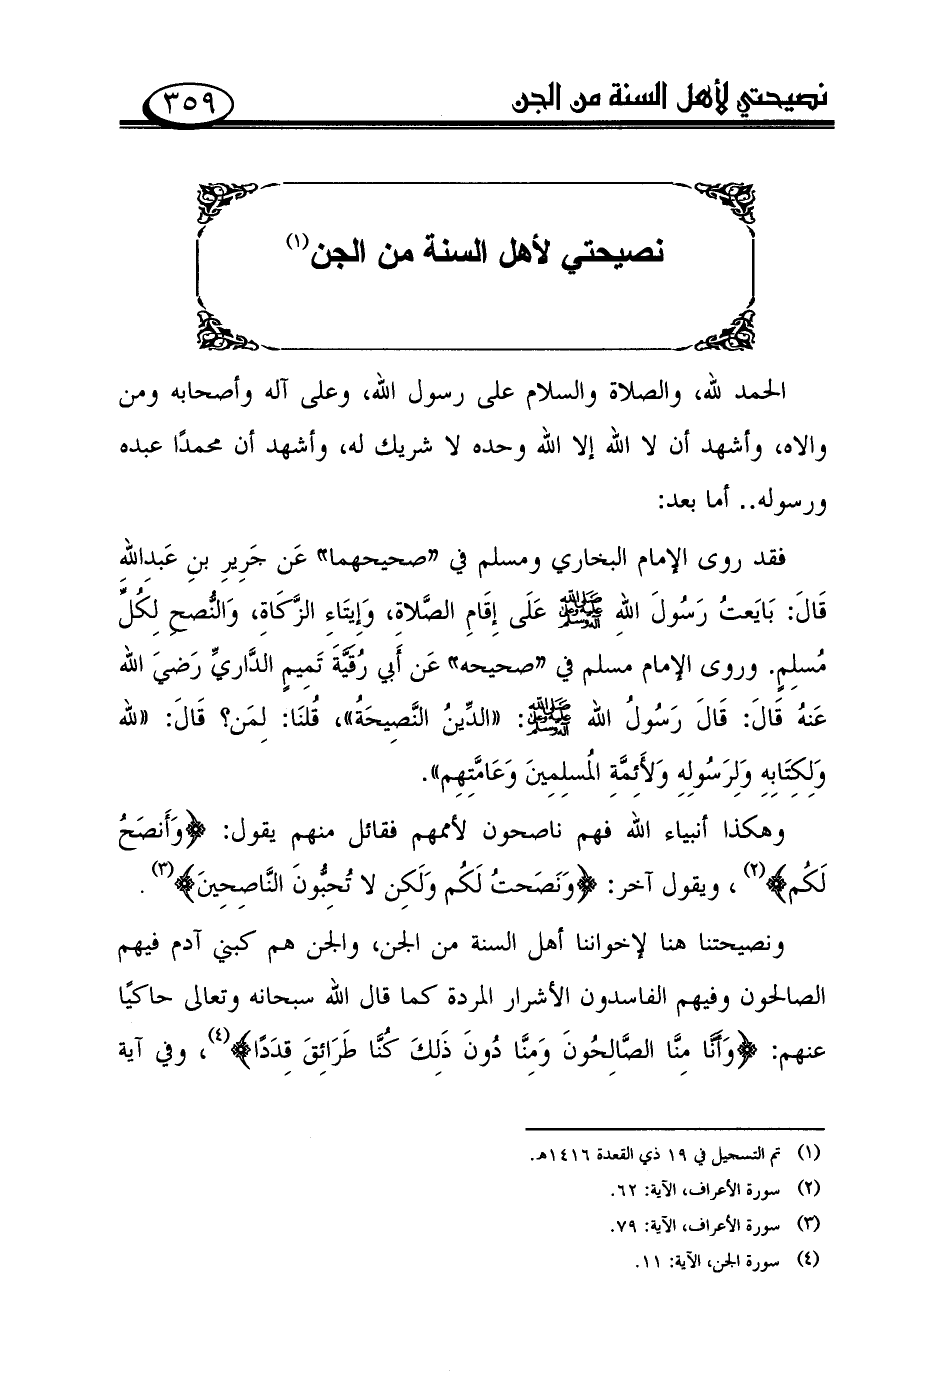 نصيحتي لأهل السنة من الجن
٣٥٩
نصيحتي لأهل السنة من الجن(١)
الحمد لله، والصلاة والسلام على رسول الله، وعلى آله وأصحابه ومن
والاه، وأشهد أن لا الله إلا الله وحده لا شريك له، وأشهد أن محمدًا عبده
ورسوله.. أما بعد:
فقد روى الإمام البخاري ومسلم في "صحيحهما" عَن جَرِيرِ بنِ عَبدِاللهِ
قَالَ: بَايَعتُ رَسُولَ اللهِ ﷺ عَلَى إِقَامِ الصَّلاةِ، وَإِيتَاءِ الزَّكَاةِ، وَالنُّصحِ لِكُلِّ
مُسلِمٍ. وروى الإمام مسلم في "صحيحه" عَن أَبِي رُقَيَّةَ تَمِيمٍ الدَّارِيِّ رَضيَ الله
عَنهُ قَالَ: قَالَ رَسُولُ الله ﷺ: «الدِّينُ النَّصِيحَةُ»، قُلنَا: لِمَن؟ قَالَ: «لله
وَلِكتَابِهِ وَلِرَسُولِهِ وَلأَئِمَّةِ المُسلِمِينَ وَعَامَّتِهِم».
وهكذا أنبياء الله فهم ناصحون لأممهم فقائل منهم يقول: ﴿وَأَنصَحُ
لَكُم﴾(٢)، ويقول آخر: ﴿وَنَصَحتُ لَكُم وَلَكِن لا تُحِبُّونَ النَّاصِحِينَ﴾(٣).
ونصيحتنا هنا لإخواننا أهل السنة من الجن، والجن هم كبني آدم فيهم
الصالحون وفيهم الفاسدون الأشرار المردة كما قال الله سبحانه وتعالى حاكيًا
عنهم: ﴿وَأَنَّا مِنَّا الصَّالِحُونَ وَمِنَّا دُونَ ذَلِكَ كُنَّا طَرَائِقَ قِدَدًا﴾(٤)، وفي آية
(١) تم التسجيل في ١٩ ذي القعدة ١٤١٦هـ.
(٢) سورة الأعراف، الآية: ٦٢.
(٣) سورة الأعراف، الآية: ٧٩.
(٤) سورة الجن، الآية: ١١.